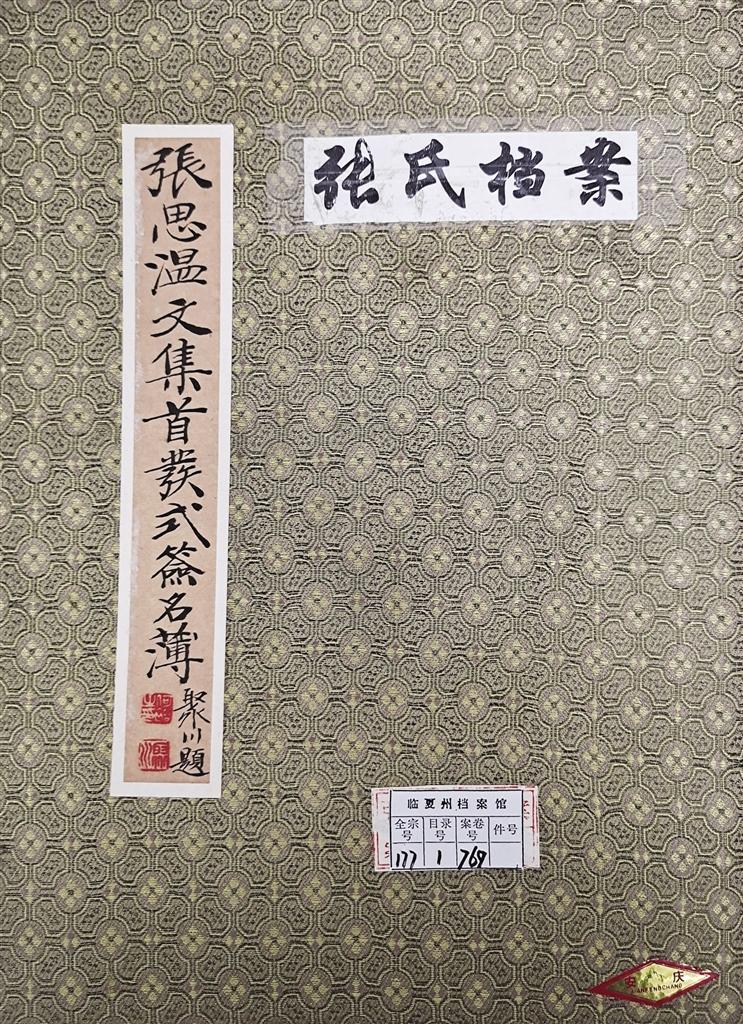 张氏档案
張思温文集首發式簽名薄
聚川題
临夏州档案馆
全宗号 目录号 案卷号 件号
177 1 769
安庆